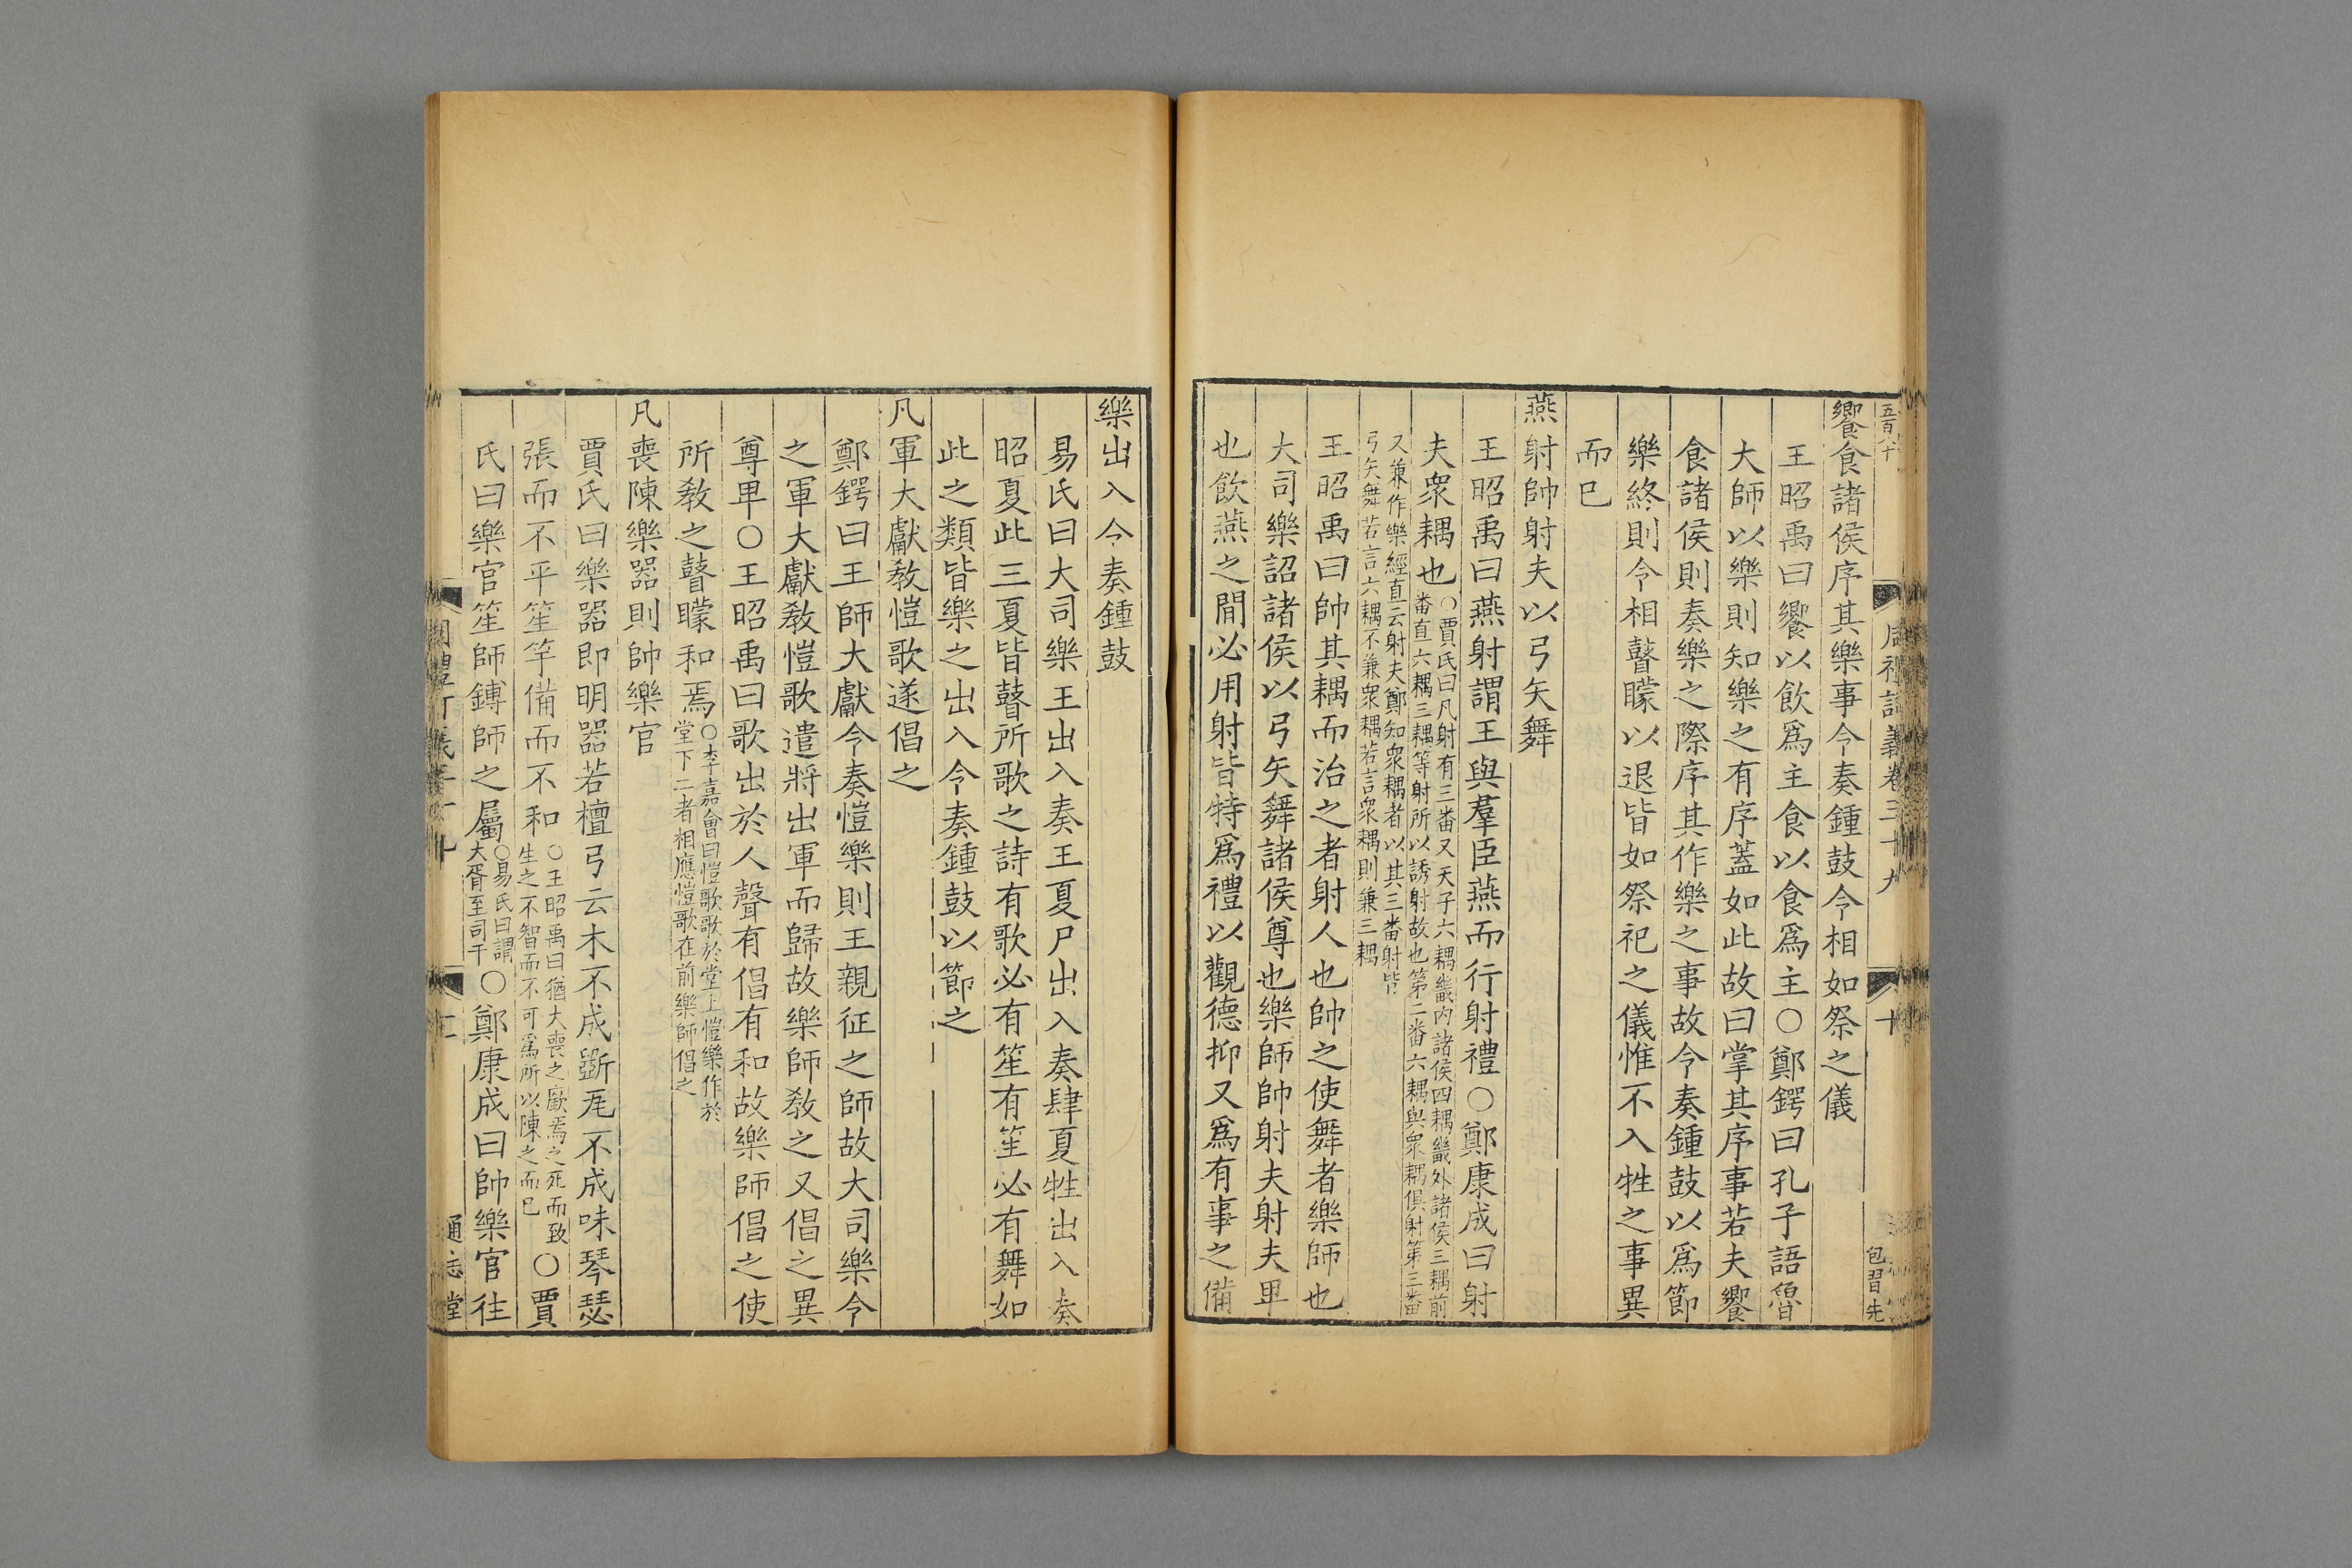 五百八十
周禮訂義卷三十九
十
包習先
饗食諸侯序其樂事令奏鍾鼓令相如祭之儀
王昭禹曰饗以飲爲主食以食爲主○鄭鍔曰孔子語魯
大師以樂則知樂之有序蓋如此故曰掌其序事若夫饗
食諸侯則奏樂之際序其作樂之事故令奏鍾鼓以爲節
樂終則令相瞽矇以退皆如祭祀之儀惟不入牲之事異
而巳
燕射帥射夫以弓矢舞
王昭禹曰燕射謂王與羣臣燕而行射禮○鄭康成曰射
夫衆耦也○賈氏曰凡射有三番又天子六耦畿内諸侯四耦畿外諸侯三耦前
番直六耦三耦等射所以誘射故也第二番六耦與衆耦俱射第三番
又兼作樂經直云射夫鄭知衆耦者以其三番射皆
弓矢舞若言六耦不兼衆耦若言衆耦則兼三耦
王昭禹曰帥其耦而治之者射人也帥之使舞者樂師也
大司樂詔諸侯以弓矢舞諸侯尊也樂師帥射夫射夫卑
也飲燕之間必用射皆特爲禮以觀德抑又爲有事之備
樂出入令奏鍾鼓
易氏曰大司樂王出入奏王夏尸出入奏肆夏牲出入奏
昭夏此三夏皆瞽所歌之詩有歌必有笙有笙必有舞如
此之類皆樂之出入令奏鍾鼓以節之
凡軍大獻敎愷歌遂倡之
鄭鍔曰王師大獻令奏愷樂則王親征之師故大司樂令
之軍大獻敎愷歌遣將出軍而歸故樂師敎之又倡之異
尊卑○王昭禹曰歌出於人聲有倡有和故樂師倡之使
所敎之瞽矇和焉○李嘉會曰愷歌歌於堂上愷樂作於
堂下二者相應愷歌在前樂師倡之
凡喪陳樂器則帥樂官
賈氏曰樂器即明器若檀弓云木不成斲瓦不成味琴瑟
張而不平笙竽備而不和○王昭禹曰猶大喪之廞焉之死而致
生之不智而不可爲所以陳之而巳○賈
氏曰樂官笙師鎛師之屬○易氏曰謂
大胥至司干○鄭康成曰帥樂官往
通志堂